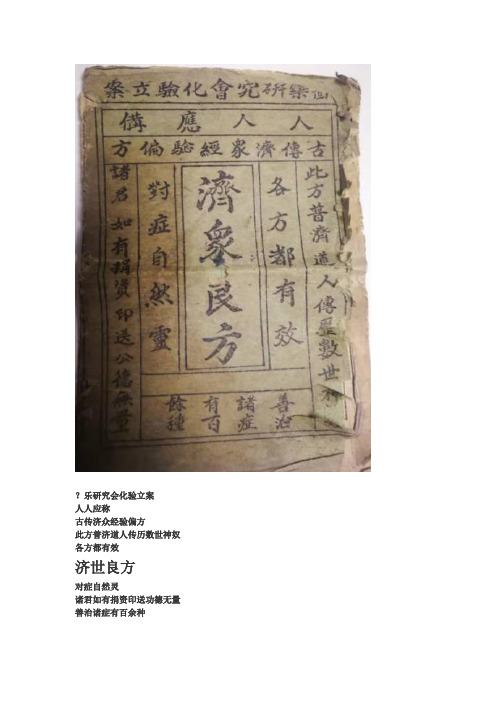 藥研究會化驗立案
人人應備
古傳濟衆經驗偏方
此方普濟道人傳歷數世神
各方都有效
濟衆良方
對症自然靈
諸君如有捐资印送公德無量
善治諸症有百餘種
？乐研究会化验立案
人人应称
古传济众经验偏方
此方普济道人传历数世神奴
各方都有效
济世良方
对症自然灵
诸君如有捐资印送功德无量
善治诸症有百余种